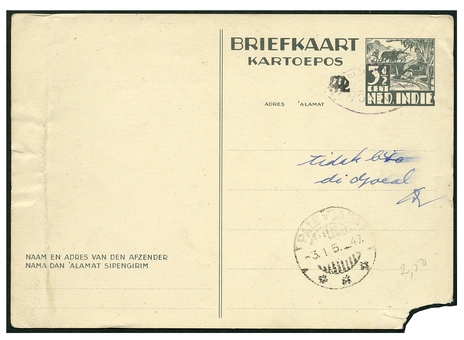 BRIEFKAART
KARTOEPOS
3½
CENT
NED. INDIE
ADRES 'ALAMAT
tidak
di djoeal
3.1 5.-47
NAAM EN ADRES VAN DEN AFZENDER
NAMA DAN 'ALAMAT SIPENGIRIM
2,50